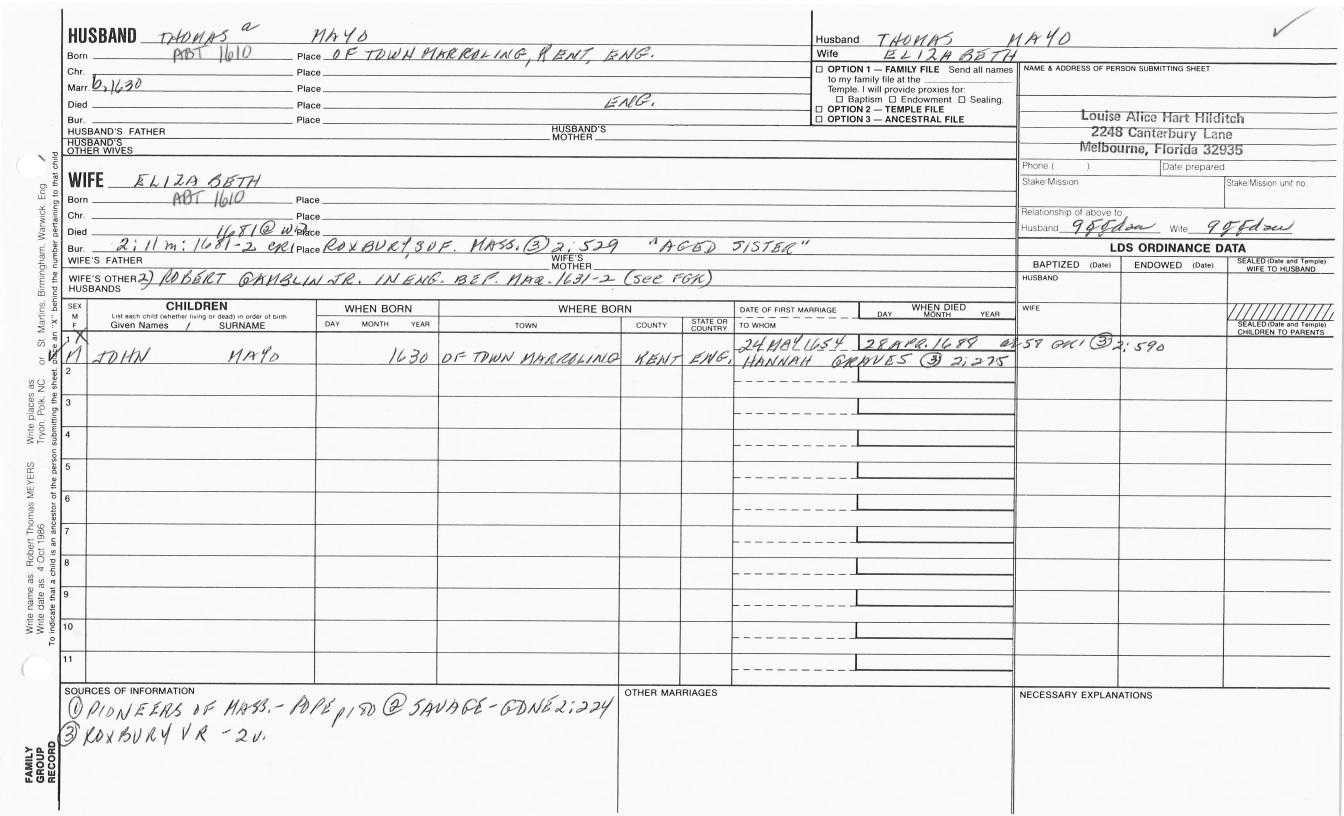 HUSBAND THOMAS a MAYO
Born ABT 1610 Place OF TOWN MARROLING, KENT, ENG.
Chr. Place
Marr b, 1630 Place
Died Place ENG.
Bur. Place
HUSBAND'S FATHER HUSBAND'S MOTHER
HUSBAND'S OTHER WIVES
Husband THOMAS MAYO
Wife ELIZABETH
☐ OPTION 1 — FAMILY FILE Send all names
to my family file at the
Temple. I will provide proxies for:
☐ Baptism ☐ Endowment ☐ Sealing.
☐ OPTION 2 — TEMPLE FILE
☐ OPTION 3 — ANCESTRAL FILE
NAME & ADDRESS OF PERSON SUBMITTING SHEET
Louise Alice Hart Hilditch
2248 Canterbury Lane
Melbourne, Florida 32935
Phone ( ) Date prepared
Stake/Mission Stake/Mission unit no.
Relationship of above to
Husband 9ggdau Wife 9ggdau
WIFE ELIZABETH
Born ABT 1610 Place
Chr. Place
Died 1681 @ Place
Bur. 2; 11m: 1681-2 Place ROXBURY, SUF. MASS. ③ 2; 529 "AGED SISTER"
WIFE'S FATHER WIFE'S MOTHER
WIFE'S OTHER HUSBANDS 2) ROBERT GAMBLIN JR. IN ENG. BEF. MAR. 1631-2 (SEE FGR)
LDS ORDINANCE DATA
BAPTIZED (Date) ENDOWED (Date) SEALED (Date and Temple) WIFE TO HUSBAND
HUSBAND
WIFE
SEALED (Date and Temple) CHILDREN TO PARENTS
SEX M F
CHILDREN
List each child (whether living or dead) in order of birth
Given Names / SURNAME
WHEN BORN
DAY MONTH YEAR
WHERE BORN
TOWN COUNTY STATE OR COUNTRY
DATE OF FIRST MARRIAGE
TO WHOM
WHEN DIED
DAY MONTH YEAR
1 X 24 MAY 1654 28 APR. 1688 58 ③ 2; 590
M JOHN MAYO 1630 OF TOWN MARROLING KENT ENG. HANNAH GRAVES ③ 2; 275
2
3
4
5
6
7
8
9
10
11
SOURCES OF INFORMATION
① PIONEERS OF MASS. - POPE p150 ② SAVAGE - GDNE 2: 224
③ ROXBURY VR - 2v.
OTHER MARRIAGES
NECESSARY EXPLANATIONS
Write name as Robert Thomas MEYERS Write places as Tryon, Polk, NC or St. Martins, Birmingham, Warwick, Eng
Write date as 4 Oct 1986
To indicate that a child is an ancestor of the person submitting the sheet, place an "X" behind the number pertaining to that child
FAMILY
GROUP
RECORD